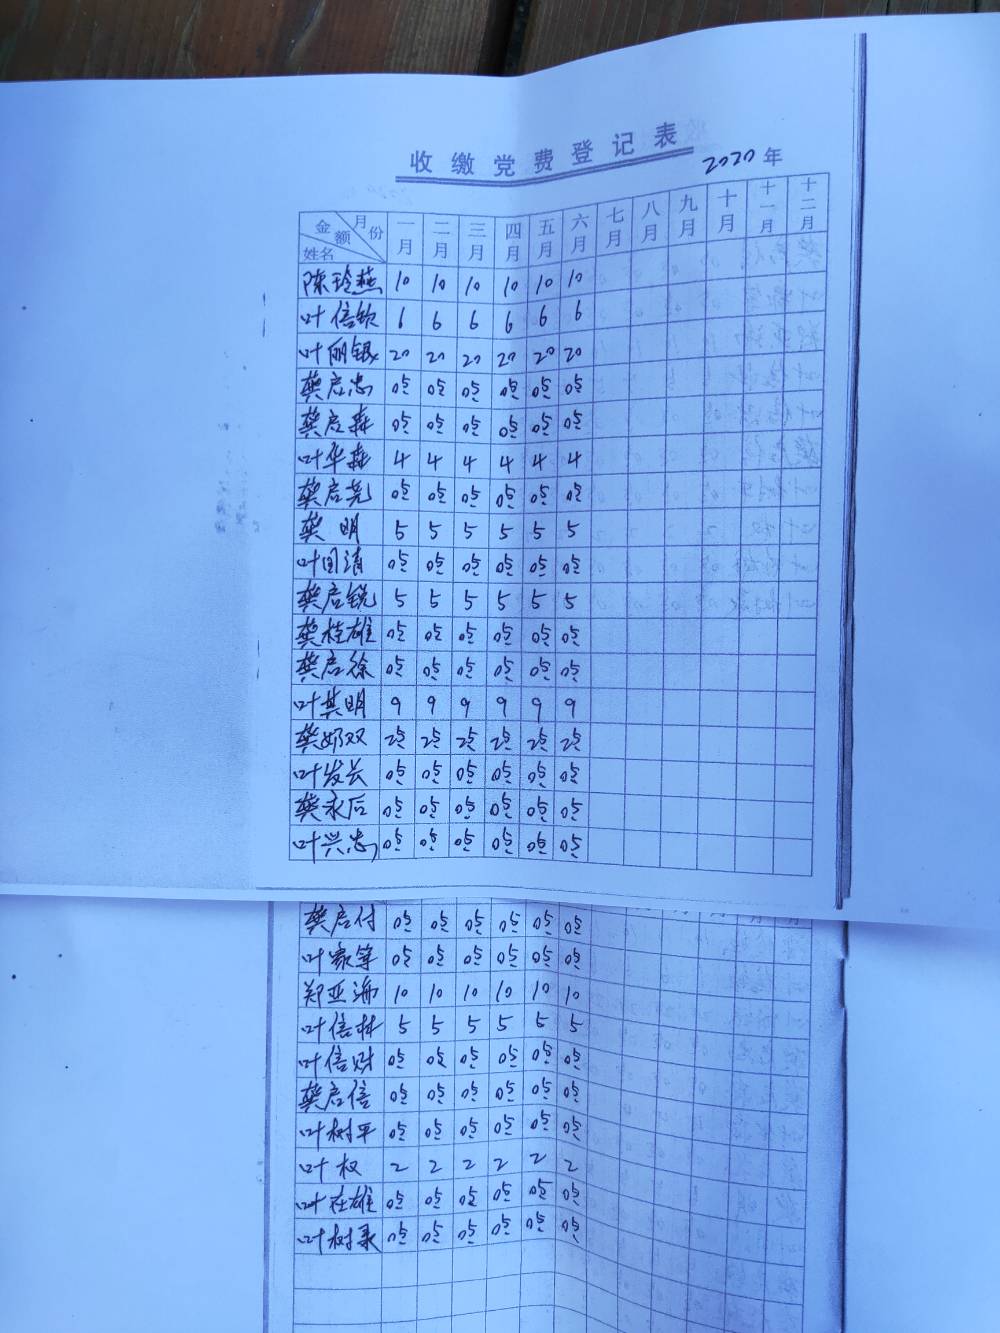 收缴党费登记表
2020年
金额 月份 姓名 一月 二月 三月 四月 五月 六月 七月 八月 九月 十月 十一月 十二月
陈玲燕 10 10 10 10 10 10
叶信钦 6 6 6 6 6 6
叶丽银 20 20 20 20 20 20
樊启忠 05 05 05 05 05 05
樊启森 05 05 05 05 05 05
叶华森 4 4 4 4 4 4
樊启尧 05 05 05 05 05 05
樊明 5 5 5 5 5 5
叶国清 05 05 05 05 05 05
樊启锐 5 5 5 5 5 5
樊桂雄 05 05 05 05 05 05
樊启徐 05 05 05 05 05 05
叶其明 9 9 9 9 9 9
樊奶双 25 25 25 25 25 25
叶发长 05 05 05 05 05 05
樊永后 05 05 05 05 05 05
叶兴忠 05 05 05 05 05 05
樊启付 05 05 05 05 05 05
叶家等 05 05 05 05 05 05
郑亚海 10 10 10 10 10 10
叶信林 5 5 5 5 5 5
叶信财 05 05 05 05 05 05
樊启信 05 05 05 05 05 05
叶树平 05 05 05 05 05 05
叶权 2 2 2 2 2 2
叶在雄 05 05 05 05 05 05
叶树录 05 05 05 05 05 05